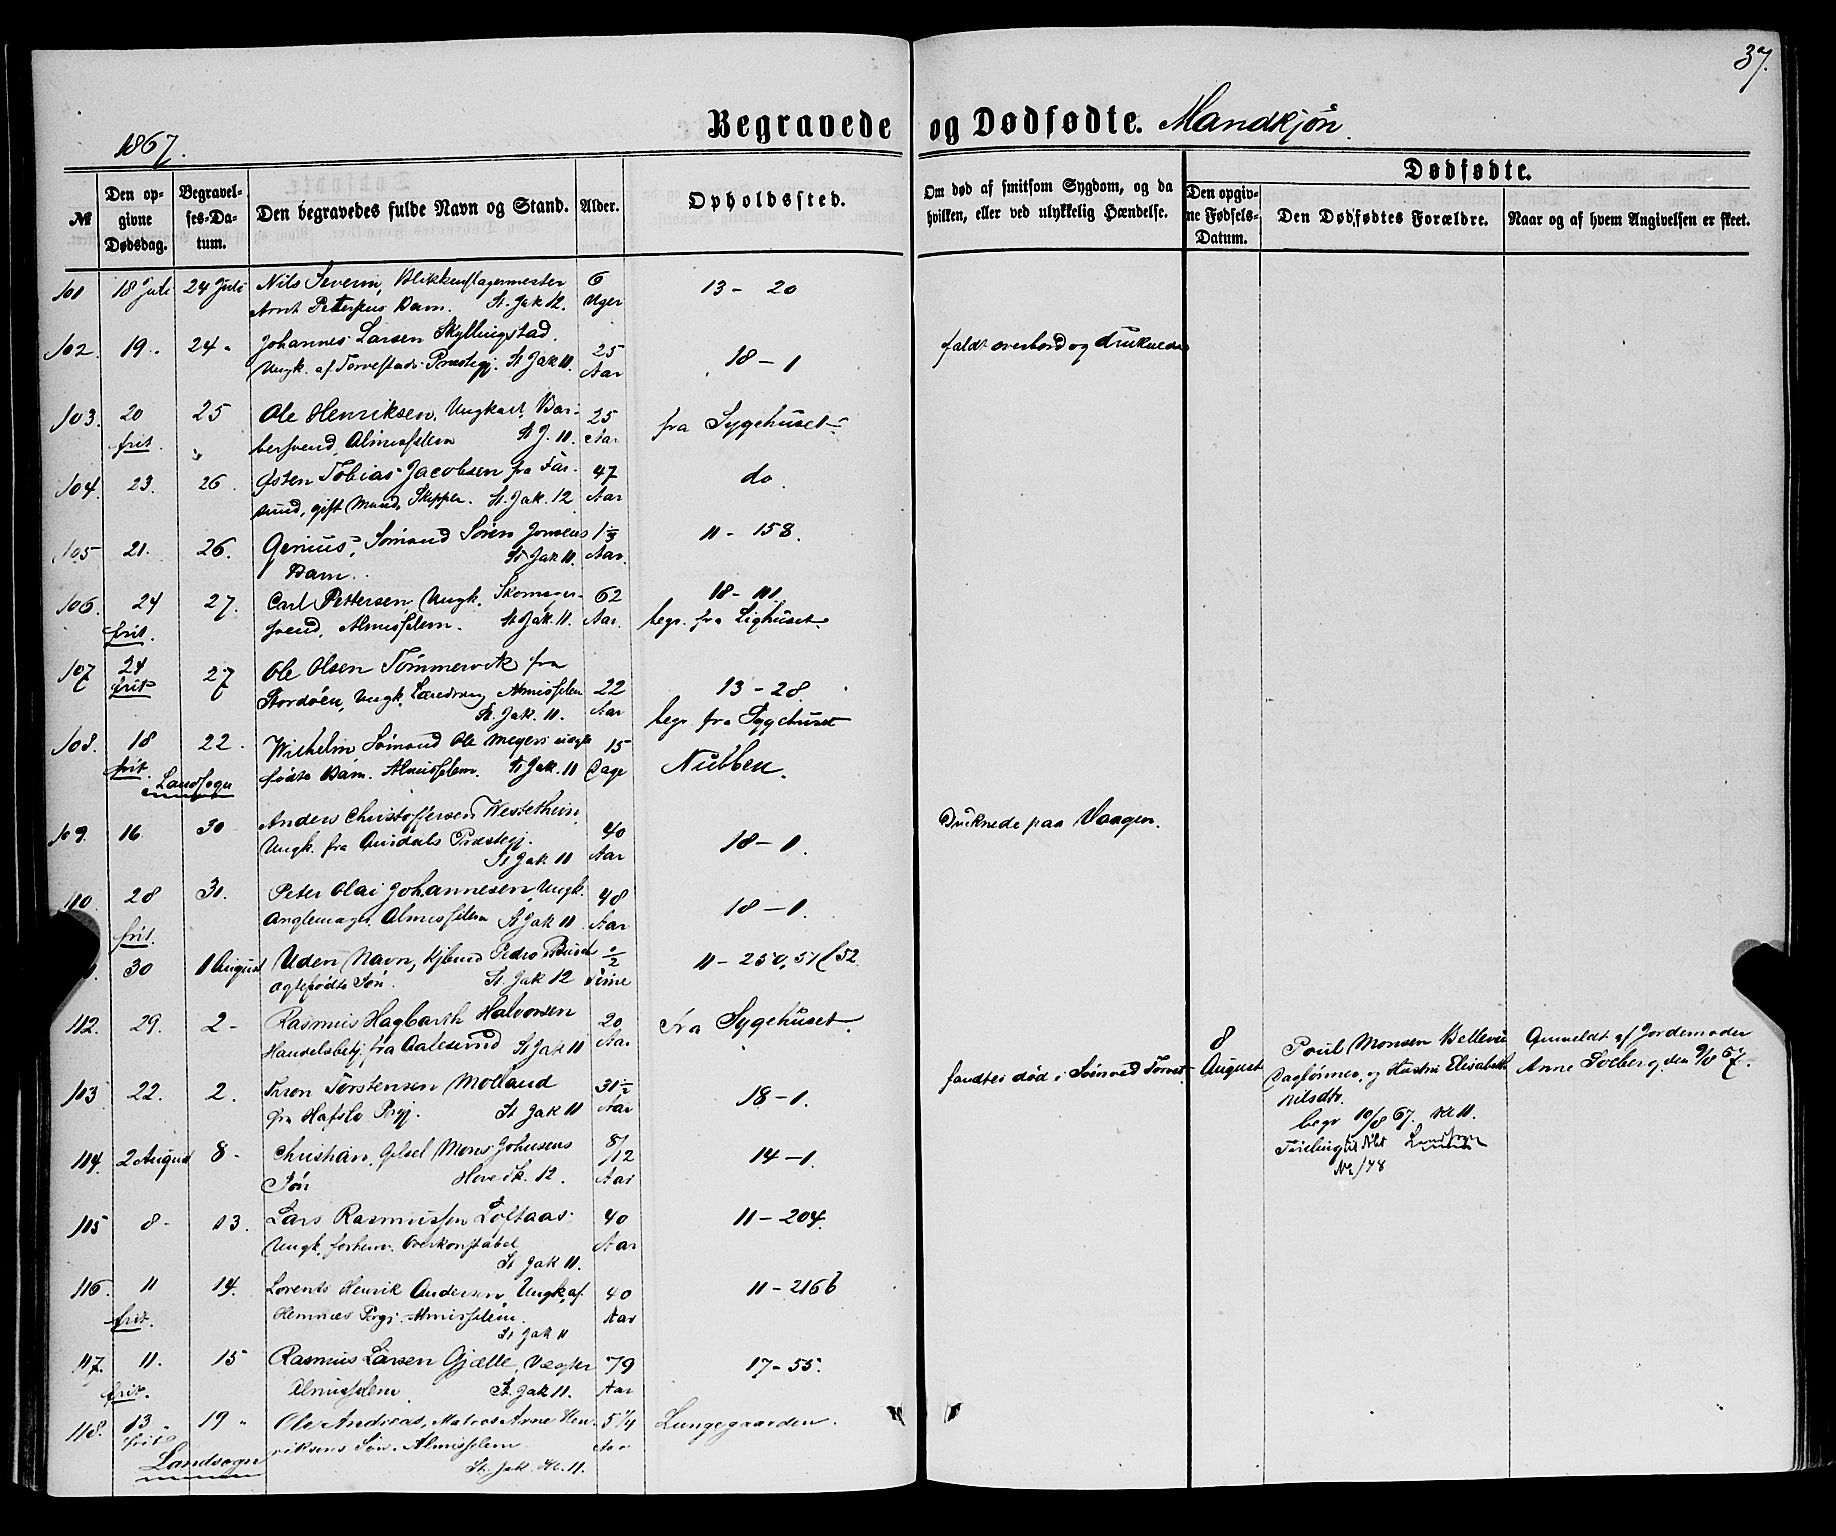 37.
1867.
Begravede og Dødfødte. Mandkjøn.
№
Den opgivne Dødsdag.
Begravelses-Datum.
Den begravedes fulde Navn og Stand.
Alder.
Opholdssted.
Om død af smitsom Sygdom, og da hvilken, eller ved ulykkelig Hændelse.
Dødfødte.
Den opgivne Fødsels-Datum.
Den Dødfødtes Forældre.
Naar og af hvem Angivelsen er skeet.
101 18 Juli 24 Juli Nils Severin, Blikkenslagermester 6 13 - 20
Arnt Petersens Barn. St. Jak 12. Uger
102. 19. 24 " Johannes Larsen Skyllingstad. 25 18 - 1 faldt overbord og druknede
Ungk. af Torvestads Præstegj. St Jak 11. Aar
103. 20 25 Ole Henriksen, Ungkarl, Bar- 25 fra Sygehuset
frit. " bersvend, Almisselem St J. 11. Aar
104. 23. 26. Østen Tobias Jacobsen fra Far- 47 do.
sund, gift Mand, Skipper. St. Jak. 12 Aar
105 21. 26. Gerius, Sømand Søren Jonsens 1 11 - 158.
St Jak 11. Aar.
Barn.
106. 24 27. Carl Pettersen, Ungk. Skomager- 62 18 -
frit. svend, Almisselem. St Jak 11. Aar. begr. fra Lighuset
107 24 27 Ole Olsen Tømmervik fra
frit Stordøen, Ungk. Almisselem 22 13 - 28.
St. Jak. 11. Aar begr. fra Sygehuset
108. 18 22. Wilhelm Sømand Ole Meyers uægte 15 Nubben.
frit. Landsogn fødte Barn. Almisselem. St Jak. 11 Dage
109. 16 30 Anders Christoffersen 40 18 - 1. Druknede paa Vaagen.
Ungk. fra Præstegj. St Jak 11 Aar
110. 28 30. Peter Olai Johannesen, Ungk. 48 18 - 1.
frit. Anglemager, Almisselem St Jak 11 Aar
30 1 August Uden Navn, Kjbmd Pedro 1/2 11 - 250, 51 & 52
ægtefødte Søn. St. Jak 12 Time
112. 29. 2 - Rasmus Hagbarth Halvorsen 20 fra Sygehuset.
Handelsbetj. fra Aalesund St Jak 11 Aar
8 August Poul Monsen Bellevue Anmeldt af Jordemoder
Daglønner, og Hustru Elisabeth Anne Solberg, den 9/8 67.
Nilsdtr.
begr 10/8 67. Kl 11.
103 22. 2. Torstensen Molland 31 1/2 18 - 1. fandtes død i Søen ved Torvet
fra Hafslo Prgj. St. Jak 11 Aar
Landsogn
No 148
114. 2 August 8 - Christian, Mons Johnsens 8/12 14 - 1.
Søn 12. Aar
115 8 - 13. Lars Rasmussen Loftaas 40 11 - 204.
Ungk, forhenv. Overkonstabel Aar
St Jak 11.
116. 11 14. Lorents Henrik Andersen, Ungk. af 40 11 - 216 b
frit. Hemnæs Prgj. Almisselem. Aar
St Jak 11
117. 11. 15 Rasmus Larsen Gjelle, Vægter 79 17 - 55.
frit. Almisselem St. Jak 11. Aar
118. 13 19 " Ole Andreas, Matros Arne Hen- 5 1/4 Lungegaarden.
frit riksens Søn. Almisselem Aar
Landsogn St. Jak. Kl. 11.